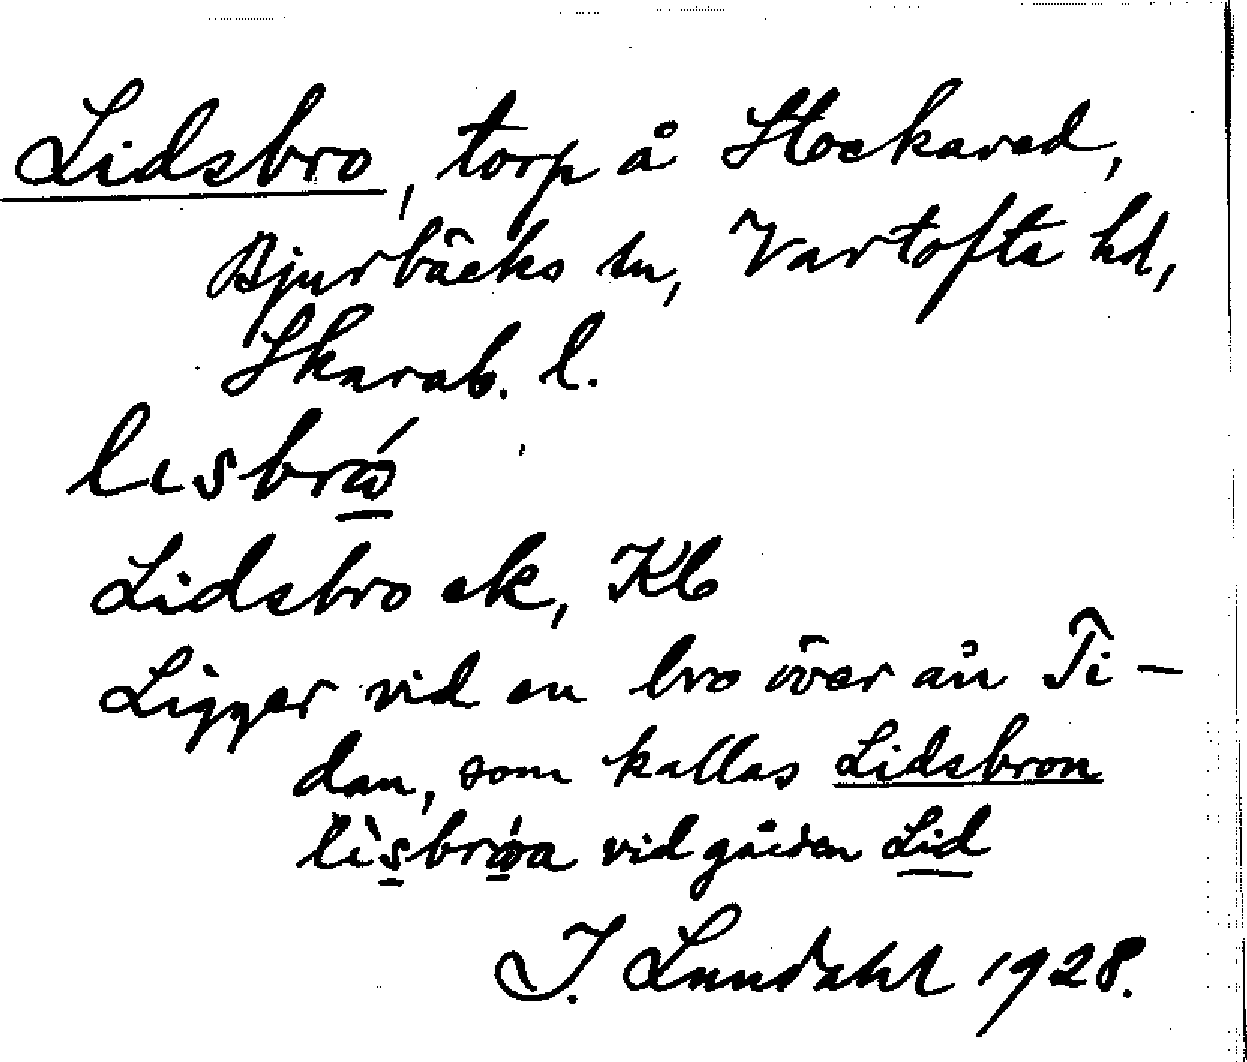 Lidsbro, torp å Stockared,
Bjurbäcks sn, Vartofta hd,
Skarab. l.
Lidsbro ek, Kb
Ligger vid en bro över ån Ti-
dan, som kallas Lidsbron
vid gården Lid
I. Lundahl 1928.